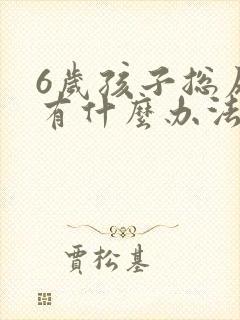 6歲孩子总
有什麼办法
賈松基